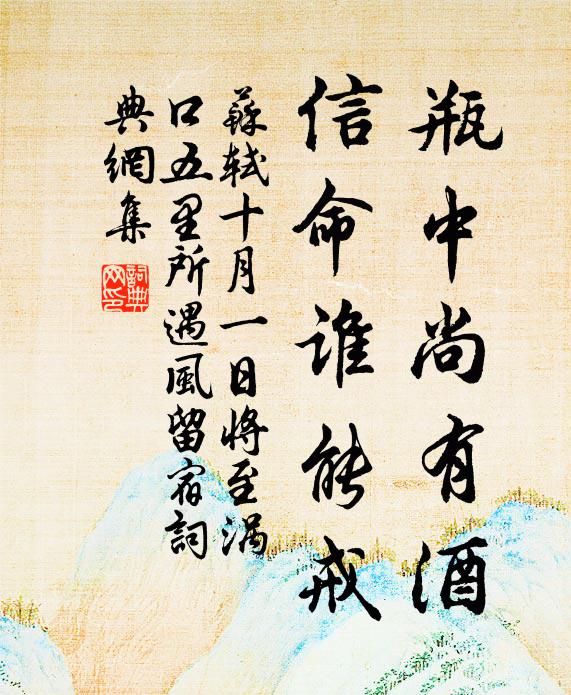 瓶中尚有酒
信命谁能戒
蘇軾十月一日將至涡
口五里所遇風留宿詞
典網集
詞典
网印